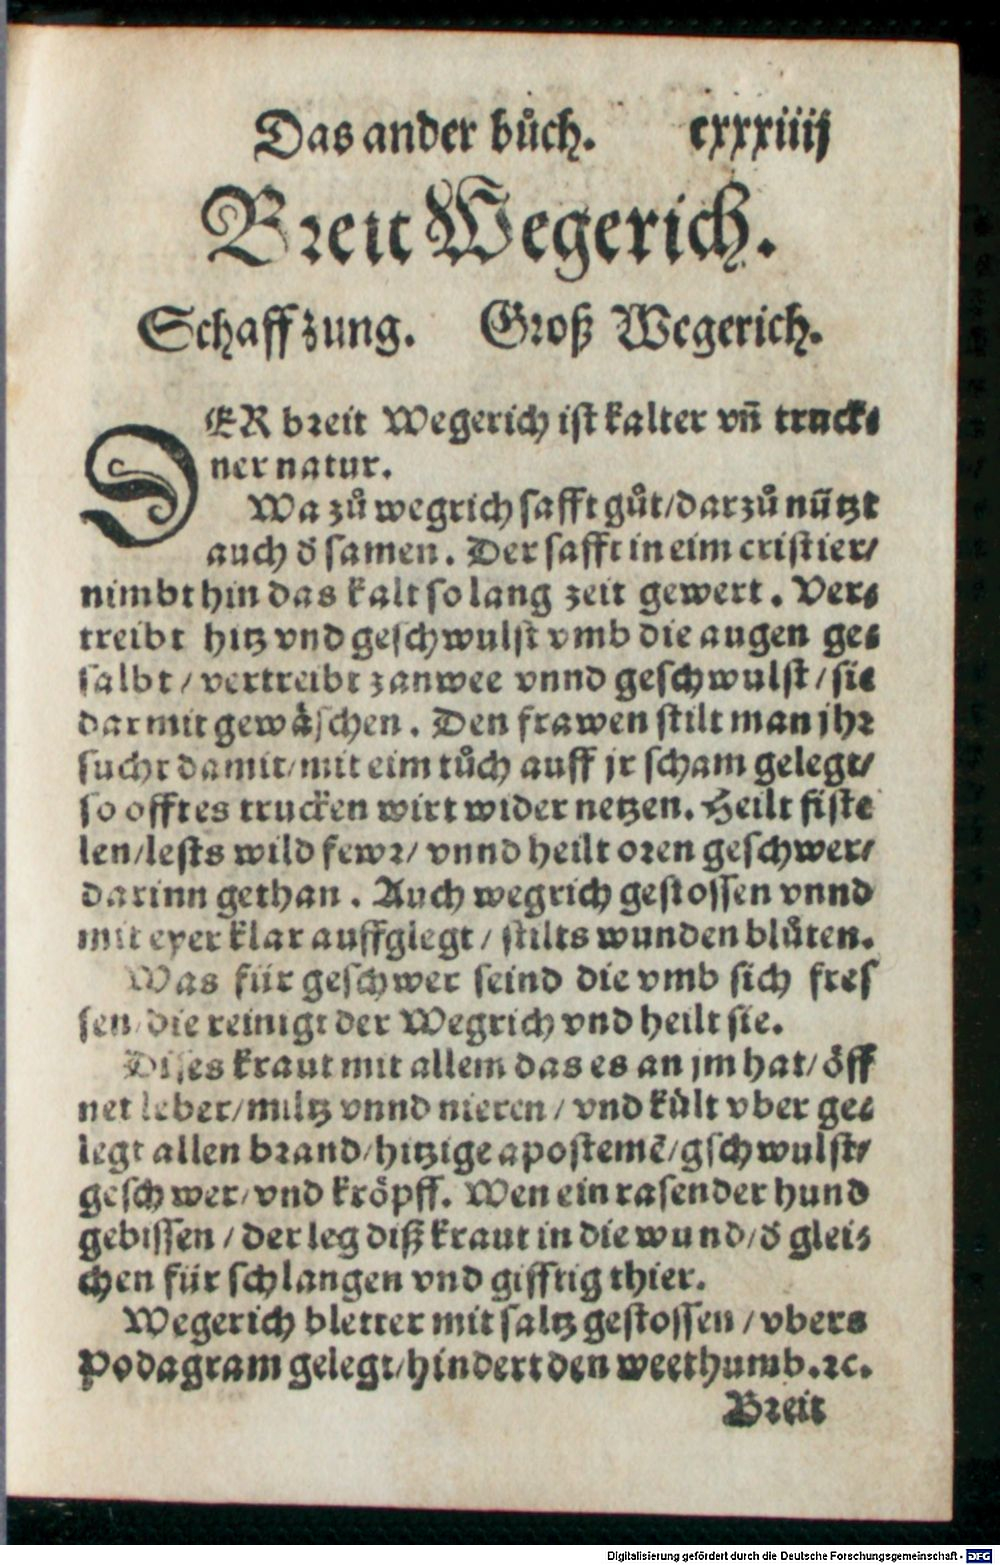 Das ander bůch. cxxxiiij
Breit Wegerich.
Schaffzung. Groß Wegerich.
DER breit Wegerich ist kalter vñ truck⸗
ner natur.
Wa zů wegrich safft gůt/darzů nützt
auch d̓ samen. Der safft in eim cristier/
nimbt hin das kalt so lang zeit gewert. Ver⸗
treibt hitz vnd geschwulst vmb die augen ge⸗
salbt/ vertreibt zanwee vnnd geschwulst/ sie
darmit gewäschen. Den frawen stilt man jhr
sucht damit/mit eim tůch auff jr scham gelegt/
so offt es trucken wirt wider netzen. Heilt fiste
len/lests wild fewr/ vnnd heilt oren geschwer/
darinn gethan. Auch wegrich gestossen vnnd
mit eyer klar auffglegt/ stilts wunden blůten.
Was für geschwer seind die vmb sich fres
sen/die reinigt der Wegrich vnd heilt sie.
Dises kraut mit allem das es an jm hat/öff
net leber/miltz vnnd nieren/ vnd kült vber ge⸗
legt allen brand/hitzige apostemē/gschwulst/
geschwer/vnd kröpff. Wen ein rasender hund
gebissen/ der leg diß kraut in die wund/d̓ glei⸗
chen für schlangen vnd gifftig thier.
Wegerich bletter mit saltz gestossen/ vbers
Podagram gelegt/hindert den weethumb.ꝛc.
Breit
Digitalisierung gefördert durch die Deutsche Forschungsgemeinschaft - DFG